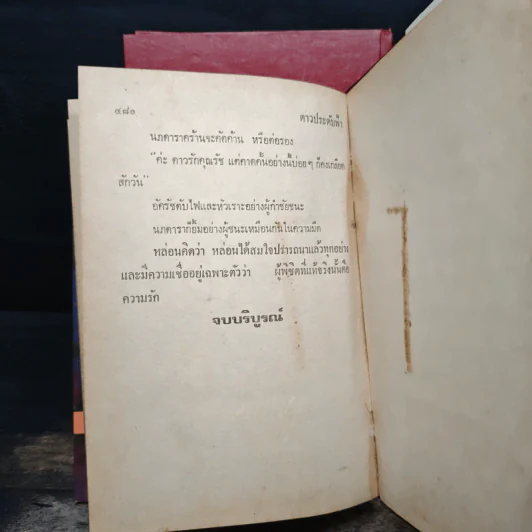 ๔๘๑
ดาวประดับฟ้า
นภดาราคร้านจะคัดค้าน หรือต่อรอง
"ค่ะ ดาวรักคุณรัช แต่คาดคั้นอย่างนี้บ่อยๆ ก็คงเกลียด
สักวัน"
อัครัชดับไฟและหัวเราะอย่างผู้กำชัยชนะ
นภดาราก็ยิ้มอย่างผู้ชนะเหมือนกันในความมืด
หล่อนคิดว่า หล่อนได้สมใจปรารถนาแล้วทุกอย่าง
และมีความเชื่ออยู่เฉพาะตัวว่า ผู้พิชิตที่แท้จริงนั้นคือ
ความรัก
จบบริบูรณ์